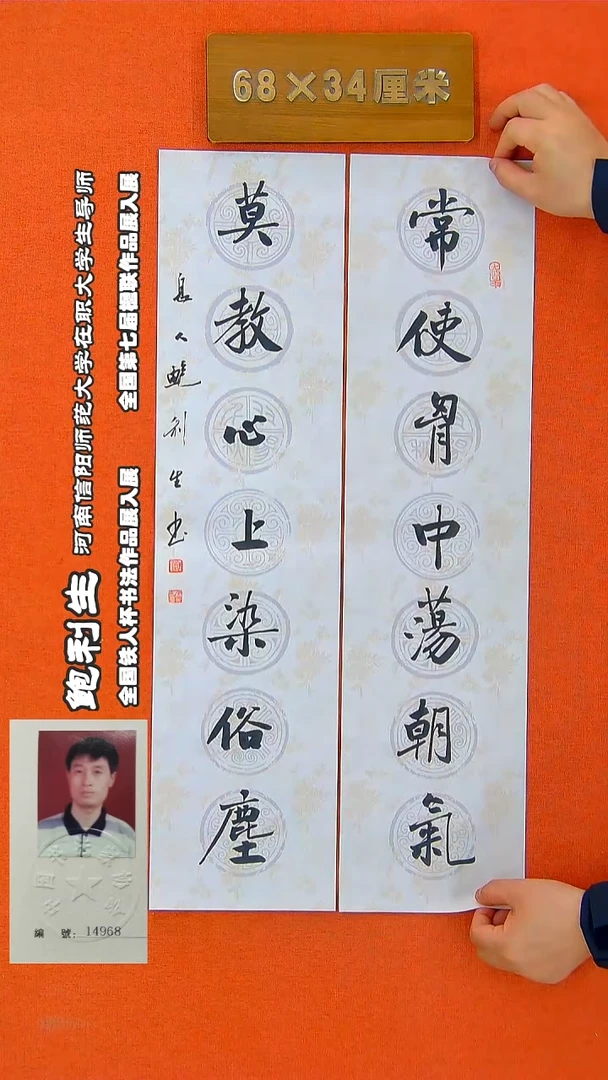 68×34厘米
常使胃中荡朝氣
莫教心上染俗塵
息人鲍利生书
鲍利生 河南信阳师范大学在职大学生导师
全国铁人杯书法作品展入展 全国第七届楹联作品展入展
編 號: 14968